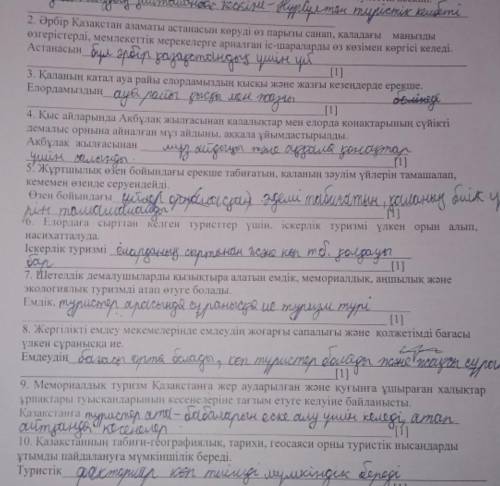 2. Әрбір Қазақстан азаматы астанасын көруді өз парызы санап, қаладағы маңызды
өзгерістерді, мемлекеттік мерекелерге арналған іс-шараларды өз көзімен көргісі келеді.
Астанасын бұл әрбір қазақстандық үшін үй
[1]
3. Қаланың қатал ауа райы елордамыздың қысқы және жазғы кезеңдерде ерекше.
Елордамыздың ауа райы қысқы мен жазғы
[1]
4. Қыс айларында Ақбұлақ жылғасынан қалалықтар мен елорда қонақтарының сүйікті
демалыс орнына айналған мұз айдыны, аққала ұйымдастырылды.
Ақбұлақ жылғасынан мұз айдыны және аққала қонақтар
үшін салынды [1]
5. Жұртшылық өзен бойындағы ерекше табиғатын, қаланың зәулім үйлерін тамашалап,
кемемен өзенде серуендейді.
Өзен бойындағы әдемі табиғатын, қаланың биік ү
рін тамашалайды [1]
6. Елордаға сырттан келген туристтер үшін, іскерлік туризмі үлкен орын алып,
насихатталуда.
Іскерлік туризмі елорданың сыртынан және көп тб. қолдауы
бар [1]
7. Шетелдік демалушыларды қызықтыра алатын емдік, мемориалдық, аңшылық және
экологиялық туризмді атап өтуге болады.
Емдік, туристер арасында сұранысқа ие туризм түрі
[1]
8. Жергілікті емдеу мекемелерінде емдеудің жоғарғы сапалығы және қолжетімді бағасы
үлкен сұранысқа ие.
Емдеудің бағасы орта болады, көп туристер болады және жақсы
[1]
9. Мемориалдық туризм Қазақстанға жер аударылған және қуғынға ұшыраған халықтар
ұрпақтары туысқандарының кесенелеріне тағзым етуге келуіне байланысты.
Қазақстанға туристер ата-бабаларын еске алу үшін келеді, атап
айтқанда кесенелер [1]
10. Қазақстанның табиғи-географиялық, тарихи, геосаяси орны туристік нысандарды
ұтымды пайдалануға мүмкіншілік береді.
Туристік факторлар көп тиімді мүмкіндік береді
[1]